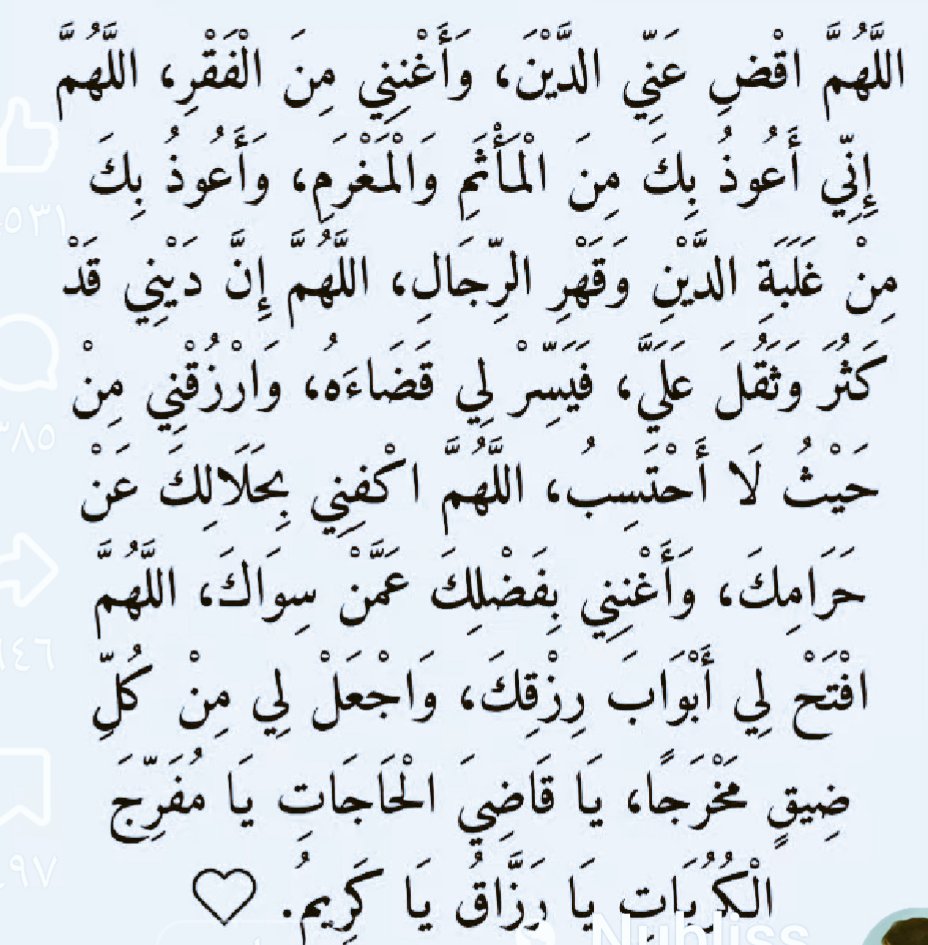 اللَّهُمَّ اقْضِ عَنِّي الدَّيْنَ، وَأَغْنِنِي مِنَ الْفَقْرِ، اللَّهُمَّ
إِنِّي أَعُوذُ بِكَ مِنَ الْمَأْثَمِ وَالْمَغْرَمِ، وَأَعُوذُ بِكَ
مِنْ غَلَبَةِ الدَّيْنِ وَقَهْرِ الرِّجَالِ، اللَّهُمَّ إِنَّ دَيْنِي قَدْ
كَثُرَ وَثَقُلَ عَلَيَّ، فَيَسِّرْ لِي قَضَاءَهُ، وَارْزُقْنِي مِنْ
حَيْثُ لَا أَحْتَسِبُ، اللَّهُمَّ اكْفِنِي بِحَلَالِكَ عَنْ
حَرَامِكَ، وَأَغْنِنِي بِفَضْلِكَ عَمَّنْ سِوَاكَ، اللَّهُمَّ
افْتَحْ لِي أَبْوَابَ رِزْقِكَ، وَاجْعَلْ لِي مِنْ كُلِّ
ضِيقٍ مَخْرَجًا، يَا قَاضِيَ الْحَاجَاتِ يَا مُفَرِّجَ
الْكُرُبَاتِ يَا رَزَّاقُ يَا كَرِيمُ. ♡
Nubliss